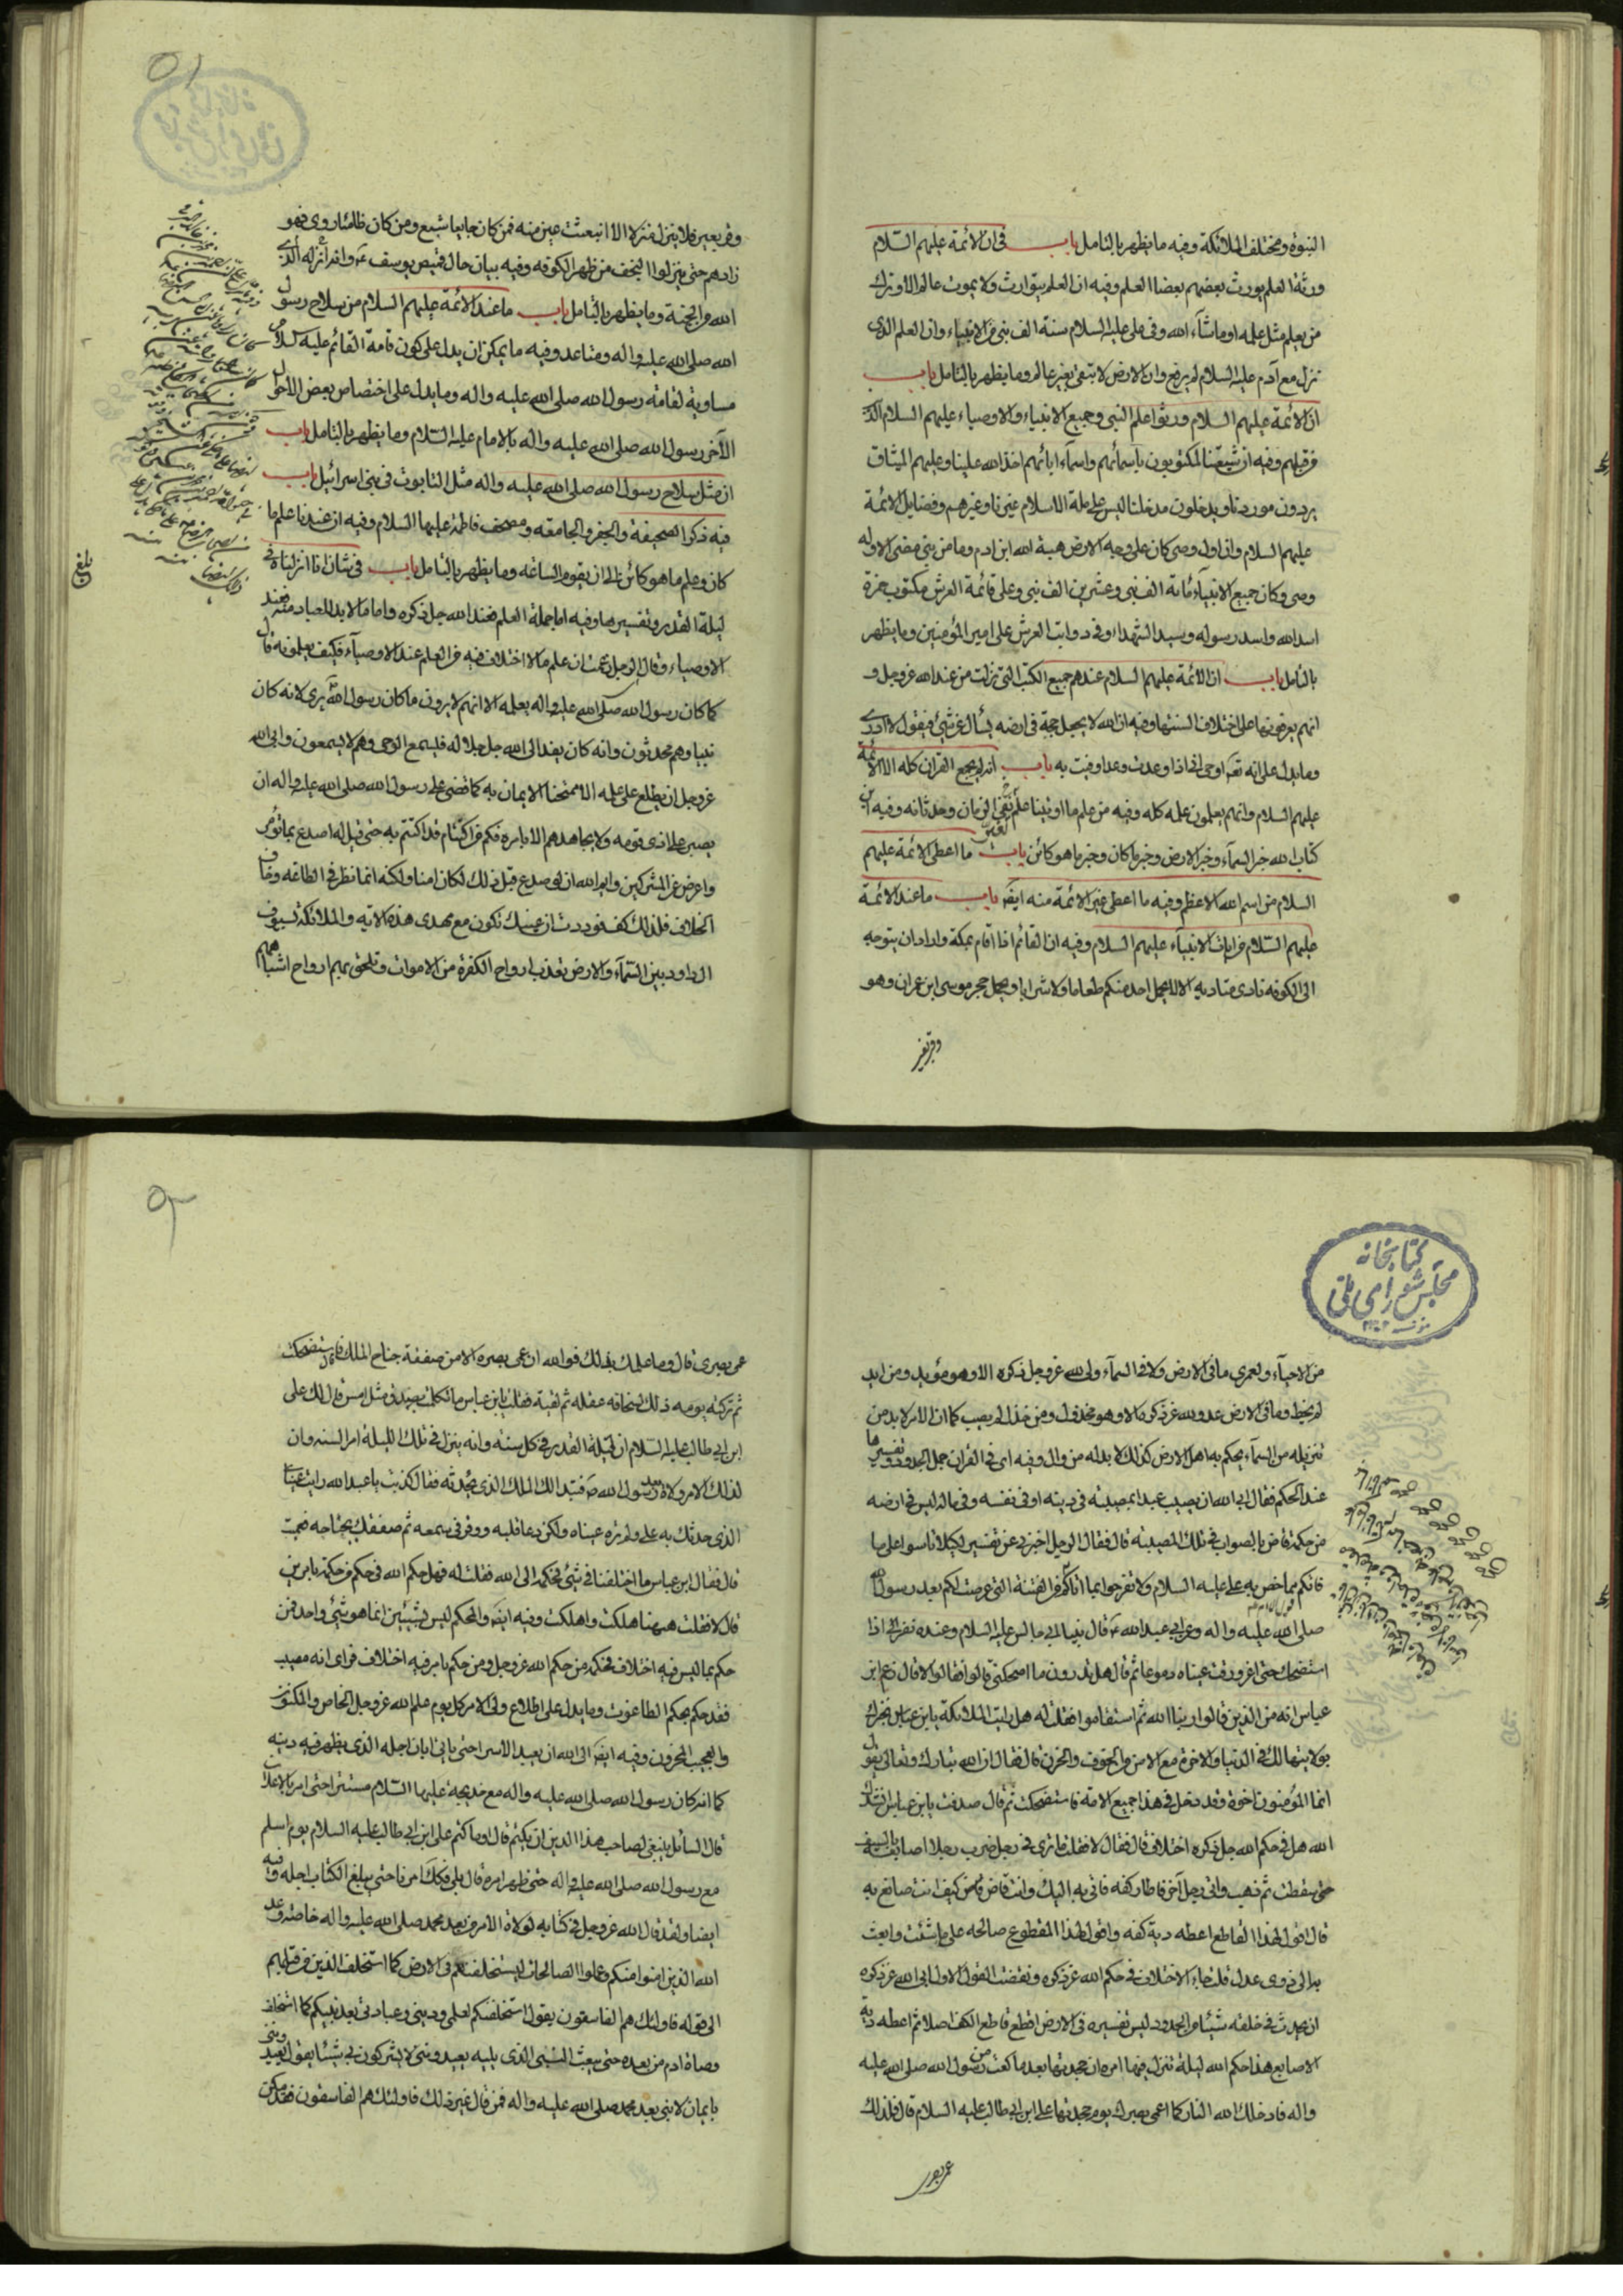 النبوة ومختلف الملائكة وفيه ما يظهر بالتامل باب في ان الائمة عليهم السلام
ورثة العلم يورث بعضهم بعضا العلم وفيه ان العلم يتوارث ولا يموت عالم الا وترك
من يعلم مثل علمه او ما شاء الله وفي علي عليه السلام سنة الف نبي من الانبياء وان العلم الذي
نزل مع آدم عليه السلام لم يرفع وان الارض لا تبقى بغير عالم وما يظهر بالتامل باب
ان الائمة عليهم السلام ورثوا علم النبي وجميع الانبياء والاوصياء عليهم السلام الذين
من قبلهم وفيه ان شيعتنا لمكتوبون باسمائهم واسماء ابائهم اخذ الله علينا وعليهم الميثاق
يردون موردنا ويدخلون مدخلنا ليس على ملة الاسلام غيرنا وغيرهم وفضايل الائمة
عليهم السلام وان اول وصي كان على وجه الارض هبة الله ابن ادم وما من نبي مضى الا وله
وصي وكان جميع الانبياء مائة الف نبي وعشرين الف نبي وعلى قائمة العرش مكتوب حمزة
اسد الله واسد رسوله وسيد الشهداء وفي ذوابة العرش علي امير المؤمنين وما يظهر
بالتامل باب ان الائمة عليهم السلام عندهم جميع الكتب التي نزلت من عند الله عز وجل و
انهم يعرفونها على اختلاف السنتها وفيه ان الله لا يجعل حجة في ارضه يسأل عن شيء فيقول لا ادري
وما يدل على انه باب انه لم يجمع القران كله الا الائمة
عليهم السلام وانهم يعلمون علمه كله وفيه من علم ما اوتينا علم الزمان وحدثانه وفيه
كتاب الله خبر السماء وخبر الارض وخبر ما كان وخبر ما هو كائن باب ما اعطي الائمة عليهم
السلام من اسم الله الاعظم وفيه ما اعطي غير الائمة منه ايضا باب ما عند الائمة
عليهم السلام من ايات الانبياء عليهم السلام وفيه ان القائم اذا قام بمكة واراد ان يتوجه
الى الكوفة نادى مناديه الا لا يحمل احد منكم طعاما ولا شرابا ويحمل حجر موسى ابن عمران وهو
وقر بعير
٥١
وقر بعير فلا ينزل منزلا الا انبعثت عين منه فمن كان جايعا شبع ومن كان ظامئا روي فهو
زادهم حتى ينزلوا النجف من ظهر الكوفة وفيه بيان حال قميص يوسف
الله من الجنة وما يظهر بالتامل باب ما عند الائمة عليهم السلام من سلاح رسول
الله صلى الله عليه واله ومتاعه وفيه ما يمكن ان يدل على كون قامة القائم عليه السلام
مساوية لقامة رسول الله صلى الله عليه واله وما يدل على اختصاص بعض
رسول الله صلى الله عليه واله بالامام عليه السلام وما يظهر بالتامل باب
ان مثل سلاح رسول الله صلى الله عليه واله مثل التابوت في بني اسرائيل باب
فيه ذكر الصحيفة والجفر والجامعة ومصحف فاطمة عليها السلام وفيه ان عندنا علم ما
كان وعلم ما هو كائن الى ان يقوم الساعة وما يظهر بالتامل باب في شان انا انزلناه في
ليلة القدر وتفسيرها وفيه اما جملة العلم فعند الله جل ذكره واما ما لا بد للعباد منه فعند
الاوصياء وقال الرجل ان علم ما لا اختلاف فيه من العلم عند الاوصياء فكيف يعلمونه قال
كما كان رسول الله صلى الله عليه واله يعلمه الا انهم لا يرون ما كان رسول الله يرى لانه كان
نبيا وهم محدثون وانه كان يفد الى الله جل جلاله فيسمع الوحي وهم لا يسمعون وابى الله
عز وجل ان يطلع على علمه الا ممتحنا للايمان به كما قضى على رسول الله صلى الله عليه واله ان
يصبر على اذى قومه ولا يجاهدهم الا بامره فكم من اكتتام قد اكتتم به حتى قيل له اصدع بما تؤمر
واعرض عن المشركين وايم الله ان لو صدع قبل ذلك لكان امنا ولكنه انما نظر في الطاعة وخاف
الخلاف فلذلك كف فوددت ان عينك تكون مع مهدي هذه الامة والملائكة بسيوف
ال داود بين السماء والارض تعذب ارواح الكفرة من الاموات وتلحق بهم ارواح اشباههم
بلغ
كتابخانه
مجلس شورای ملی
من الاحياء ولعمري ما في الارض ولا في السماء ولي لله عز وجل ذكره الا وهو مؤيد ومن ايد
لم يخط وما في الارض عدو لله عز ذكره الا وهو مخذول ومن خذل لم يصب كما ان الامر لا بد من
تنزيله من السماء يحكم به اهل الارض كذلك لا بد له من وال وفيه اي في القران جمل الحدود وتفسيرها
عند الحكم فقال ابى الله ان يصيب عبدا بمصيبة في دينه او في نفسه وفي ماله ليس في ارضه
من حكمه قاض بالصواب في تلك المصيبة قال فقال الرجل اخبرني عن تفسير لكيلا تاسوا على ما
فاتكم مما خص به علي عليه السلام ولا تفرحوا بما اتاكم من الفتنة التي عرضت لكم بعد رسول الله
صلى الله عليه واله وعن ابي عبد الله قال بينا ابي جالس عليه السلام وعنده نفر اذ
استضحك حتى اغرورقت عيناه دموعا ثم قال هل تدرون ما اضحكني قالوا فقالوا لا قال زعم ابن
عباس انه من الذين قالوا ربنا الله ثم استقاموا فقلت له هل رايت الملائكة يا بن عباس تخبرك
بولايتها لك في الدنيا والاخرة مع الامن من الخوف والحزن قال فقال ان الله تبارك وتعالى يقول
انما المؤمنون اخوة وقد دخل في هذا جميع الامة فاستضحكت ثم قال صدقت يا بن عباس انشدك
الله هل في حكم الله جل ذكره اختلاف قال فقال لا فقلت ما ترى في رجل ضرب رجلا اصابعه بالسيف
حتى سقطت ثم ذهب واتى رجل آخر فاطار كفه فاتي به اليك وانت قاض كيف انت صانع به
قال اقول لهذا القاطع اعطه دية كفه واقول لهذا المقطوع صالحه على ما شئت وابعث
به الى ذوي عدل قلت جاء الاختلاف في حكم الله عز ذكره ونقضت القول الاول ابى الله عز ذكره
ان يحدث في خلقه شيئا من الحدود ليس تفسيره في الارض اقطع قاطع الكف اصلا ثم اعطه دية
الاصابع هذا حكم الله ليلة تنزل فيها امره ان جحدتها بعد ما سمعت من رسول الله صلى الله عليه
واله فادخلك الله النار كما اعمى بصرك يوم جحدتها على ابن ابي طالب عليه السلام قال فلذلك
عمي بصري
٥٢
عمي بصري قال وما علمك بذلك فوالله ان عمي بصره الا من صفقة جناح الملك فاستضحكت
ثم تركته يومه ذلك لسخافة عقله ثم لقيته فقلت يا بن عباس ما تكلمت بصدق مثل امس قال لك علي
ابن ابي طالب عليه السلام ان ليلة القدر في كل سنة وانه ينزل في تلك الليلة امر السنة وان
لذلك الامر ولاة بعد رسول الله فتبدا لك الملك الذي يحدثه فقال كذبت يا عبد الله رات عيناي
الذي حدثك به علي ولم تره عيناه ولكن وعا قلبه ووقر في سمعه ثم صفقك بجناحه فعميت
قال فقال ابن عباس ما اختلفنا في شيء فحكمه الى الله فقلت له فهل حكم الله في حكم من حكمه بامرين
قال لا فقلت ههنا هلكت واهلكت وفيه ايضا والمحكم ليس بشيئين انما هو شيء واحد فمن
حكم بما ليس فيه اختلاف فحكمه من حكم الله عز وجل ومن حكم بامر فيه اختلاف فراى انه مصيب
فقد حكم بحكم الطاغوت وما يدل على اطلاع ولي الامر كل يوم علم الله عز وجل الخاص والمكنون
والعجيب المخزون وفيه ايضا ابى الله ان يعبد الا سرا حتى ياتي ابان اجله الذي يظهر فيه دينه
كما انه كان رسول الله صلى الله عليه واله مع خديجة عليها السلام مستترا حتى امر بالاعلان
قال السائل ينبغي لصاحب هذا الدين ان يكتم قال اوما كتم علي ابن ابي طالب عليه السلام يوم اسلم
مع رسول الله صلى الله عليه واله حتى ظهر امره قال بلى فكذلك امرنا حتى يبلغ الكتاب اجله وفيه
ايضا ولقد قال الله عز وجل في كتابه لولاة الامر من بعد محمد صلى الله عليه واله خاصة وعد
الله الذين امنوا منكم وعملوا الصالحات ليستخلفنهم في الارض كما استخلف الذين من قبلهم
الى قوله فاولئك هم الفاسقون يقول استخلفكم لعلمي وديني وعبادتي بعد نبيكم كما استخلف
وصاة ادم من بعده حتى يبعث النبي الذي يليه يعبدونني لا يشركون بي شيئا يقول يعبدونني
بايمان لا نبي بعد محمد صلى الله عليه واله فمن قال غير ذلك فاولئك هم الفاسقون فقد مكن